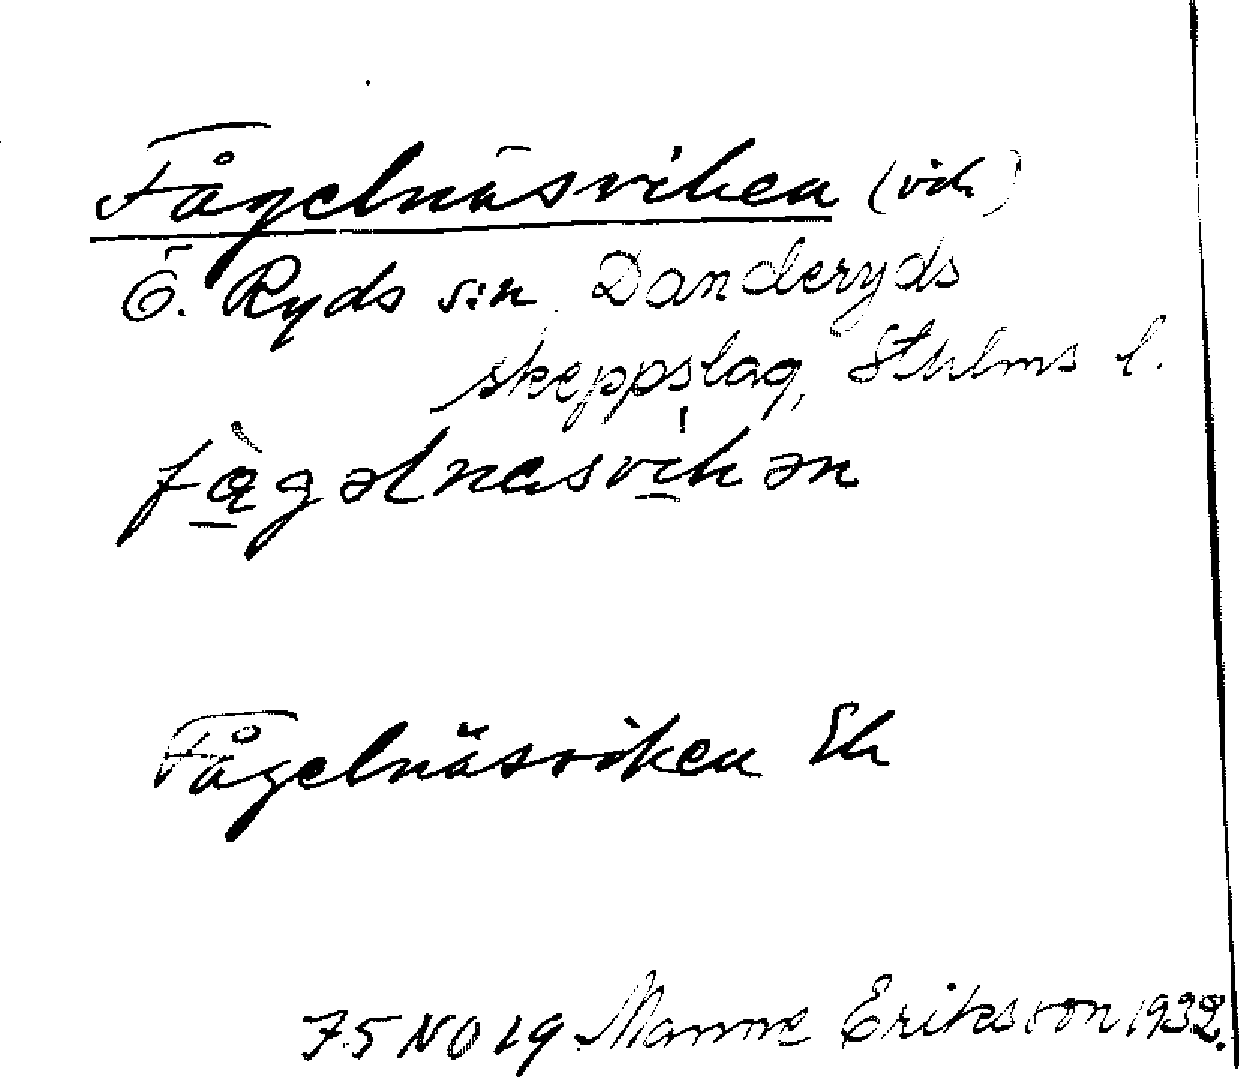 Fågelnäsviken (vik)
Ö. Ryds sn Danderyds
skeppslag, Sthlms l.
Fågelnäsviken Ek
75 NO 19 Manne Eriksson 1932.